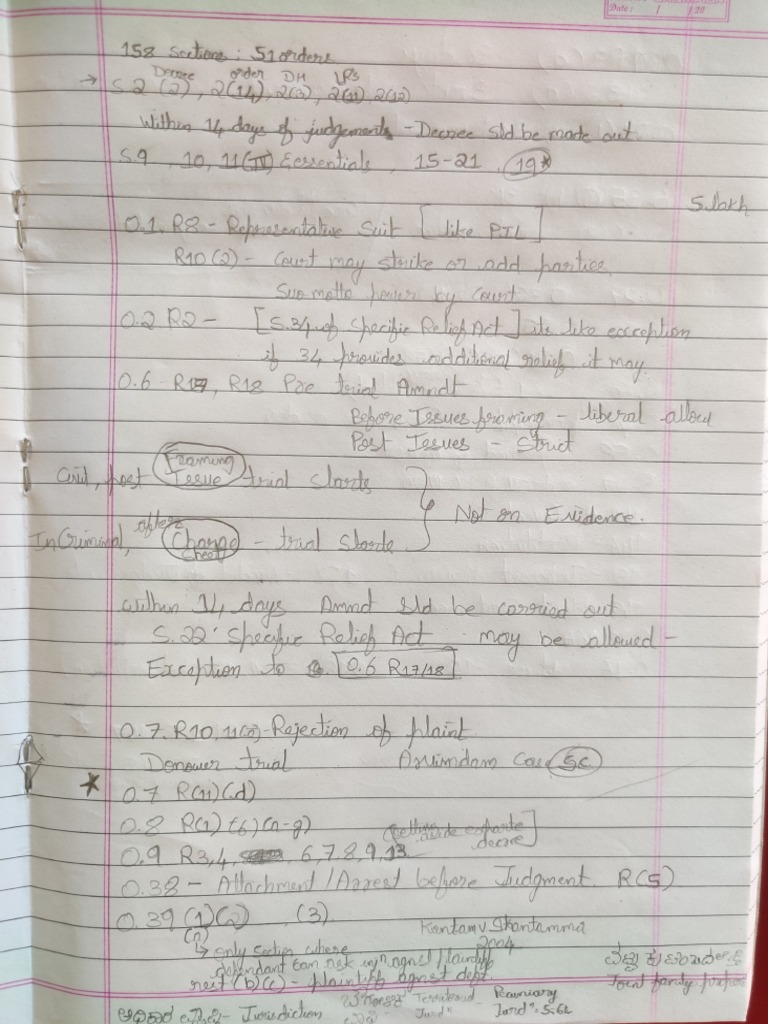 Date: / / 20
158 sections; 51 orders
Decree order DH LRs
→ S.2 (2), 2(14), 2(3), 2(11), 2(12)
Within 14 days of judgements - Decree sld be made out.
S.9, 10, 11 (IV) Eessentials, 15-21, 19*
5 lakh
O.1. R8 - Representative Suit [like PIL]
R10 (2) - Court may strike or add parties,
Suo motto power by court
O.2 R2 - [S.34 of Specific Relief Act] its like exception
if 34 provides additional relief it may.
O.6 R17, R18 Pre trial Amndt
Before Issues framing - liberal allow
Post Issues - Strict
Framing
Civil, post Issue trial starts
Not on Evidence.
In Criminal, after Charge sheet - trial starts
Within 14 days Amnd sld be carried out
S.22 Specific Relief Act may be allowed -
Exception to O.6 R17/18
O.7. R10, 11(a) - Rejection of plaint
Demower trial Case SC
* O.7 R(11)(d)
O.8 R(1) (6) (a-g)
O.9 R3,4, 6,7,8,9,13 (Setting aside exparte decree]
O.38 - Attachment/Arrest before Judgment. R(5)
O.39 (1)(2) (3)
(a) Kantam v Shantamma
2004
↳ only section where
defendant can ask injn agnst plaintiff
rest (b)(c) - plaintiff agnst deft.
Joint family
Jurisdiction Territorial Jurdn Pecuniary Jurdn